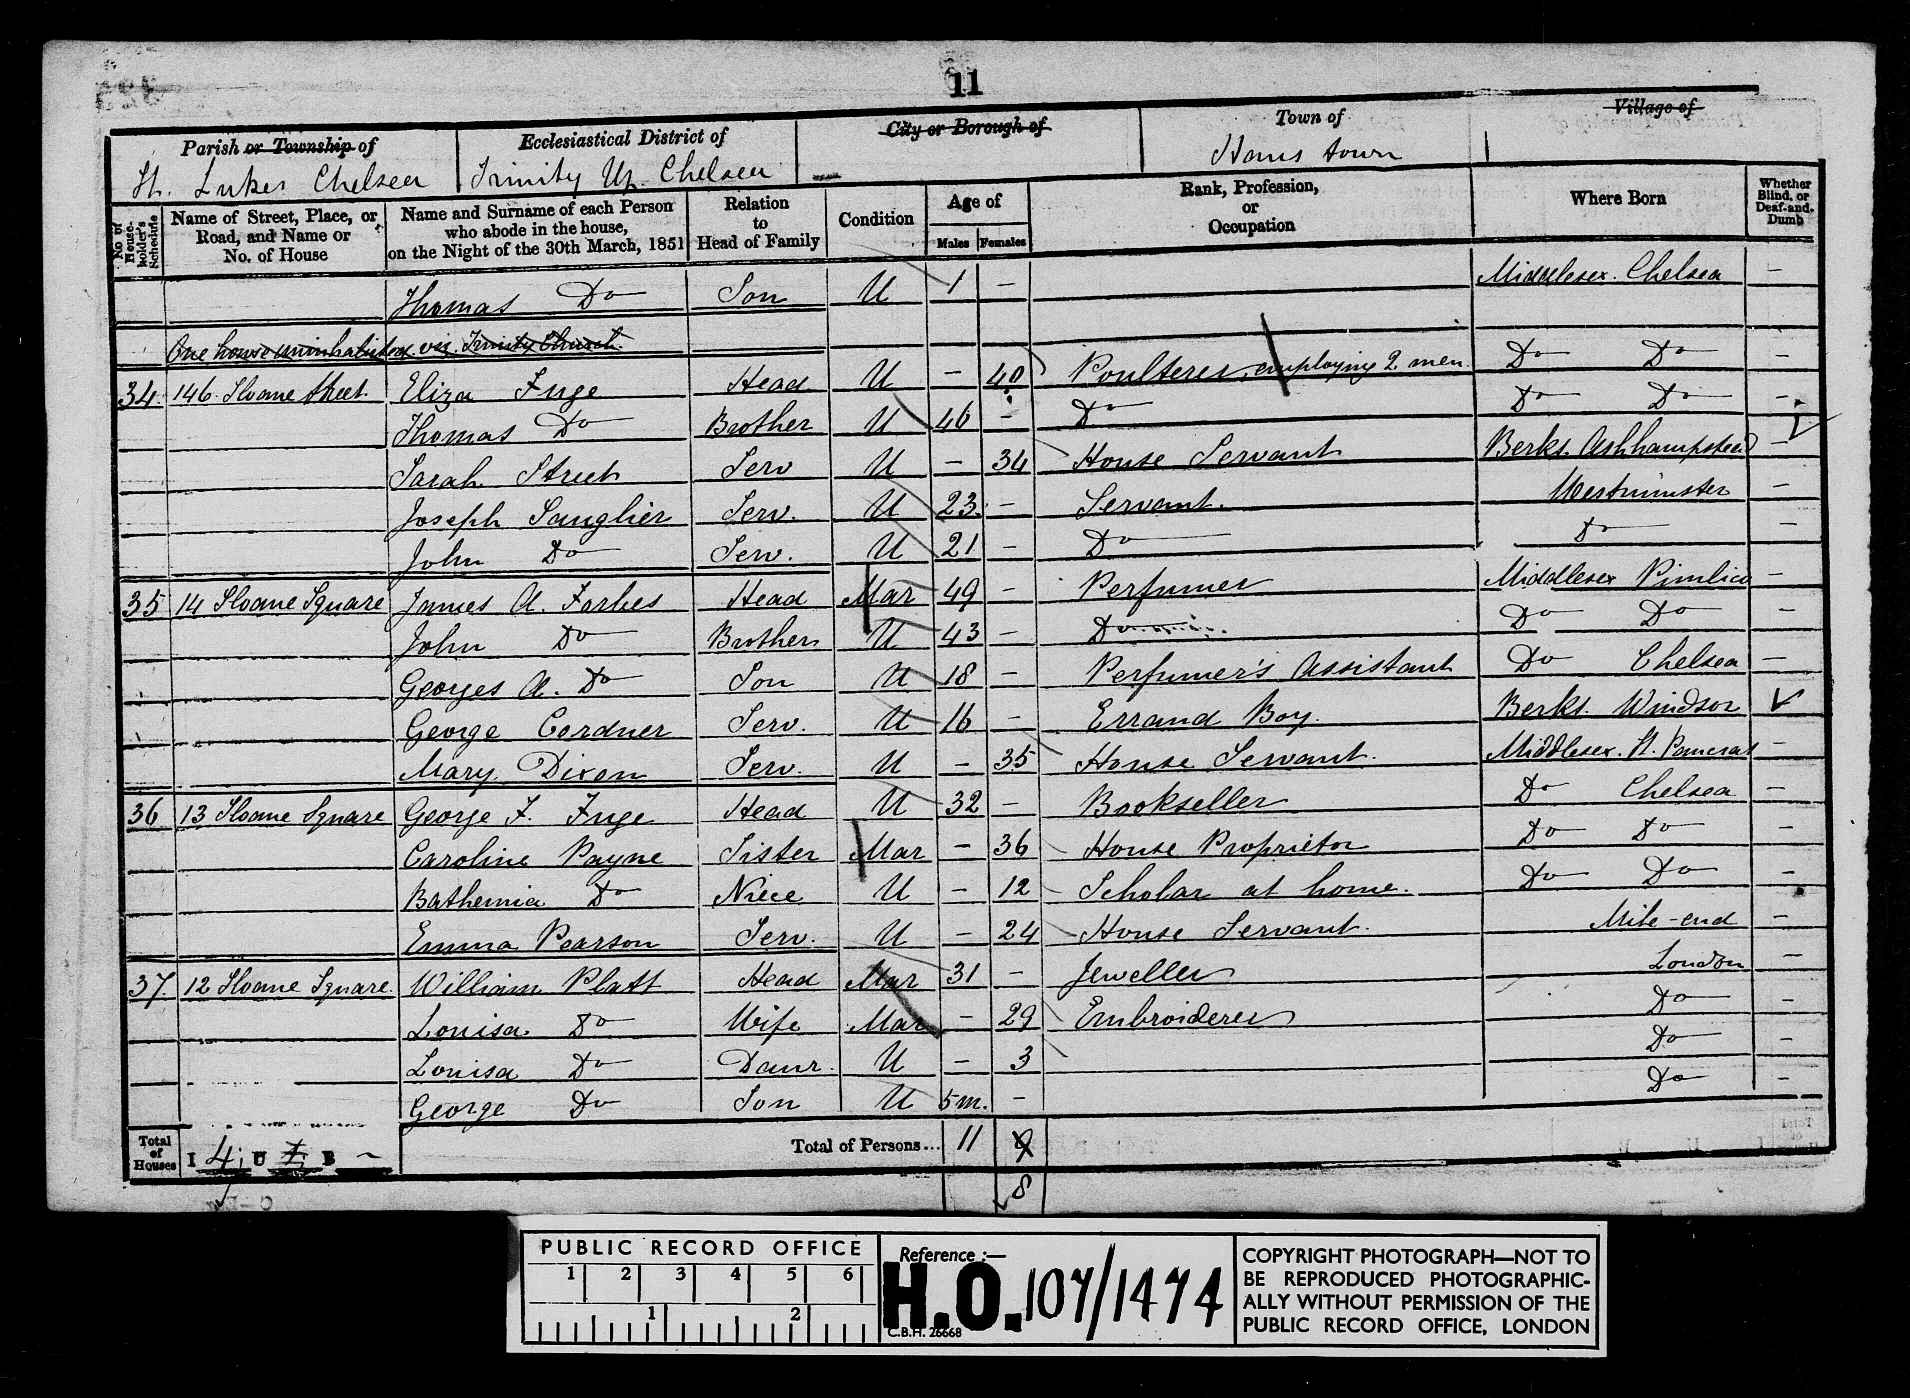 11
Parish or Township of Ecclesiastical District of City or Borough of Town of Village of
St. Lukes Chelsea Trinity Up. Chelsea Hans Town
No. of House-holder's Schedule Name of Street, Place, or Road, and Name or No. of House Name and Surname of each Person who abode in the house, on the Night of the 30th March, 1851 Relation to Head of Family Condition Age of Males Females Rank, Profession, or Occupation Where Born Whether Blind, or Deaf-and-Dumb
Thomas Do Son U 1 - Middlesex. Chelsea -
One house uninhabited viz. Trinity Church
34 146 Sloane Street. Eliza Fuge Head U - 40 Poulterer, employing 2 men Do Do -
Thomas Do Brother U 46 - Do Do Do -
Sarah Street Serv U - 34 House Servant Berks. Ashhampstead -
Joseph Sanglier Serv. U 23 - Servant. Westminster -
John Do Serv. U 21 - Do Do -
35 14 Sloane Square James A. Forbes Head Mar 49 - Perfumer Middlesex Pimlico -
John Do Brother U 43 - Do Do Do -
Georges A. Do Son U 18 - Perfumer's Assistant Do Chelsea -
George Cordner Serv. U 16 - Errand Boy. Berks. Windsor
Mary Dixon Serv. U - 35 House Servant. Middlesex. St. Pancras -
36 13 Sloane Square George F. Fuge Head U 32 - Bookseller Do Chelsea -
Caroline Payne Sister Mar - 36 House Proprietor Do Do -
Bathenia Do Niece U - 12 Scholar at home. Do Do -
Emma Pearson Serv. U - 24 House Servant. Mile-end -
37. 12 Sloane Square. William Platt Head Mar 31 - Jeweller London -
Louisa Do Wife Mar - 29 Embroiderer Do -
Louisa Do Daur. U - 3 Do -
George Do Son U 5m. - Do -
Total of Houses I 4 U B - Total of Persons... 11 9
8
PUBLIC RECORD OFFICE
1 2 3 4 5 6
1 2
Reference :-
H.O. 107/1474
C.B.H. 26668
COPYRIGHT PHOTOGRAPH—NOT TO
BE REPRODUCED PHOTOGRAPHIC-
ALLY WITHOUT PERMISSION OF THE
PUBLIC RECORD OFFICE, LONDON